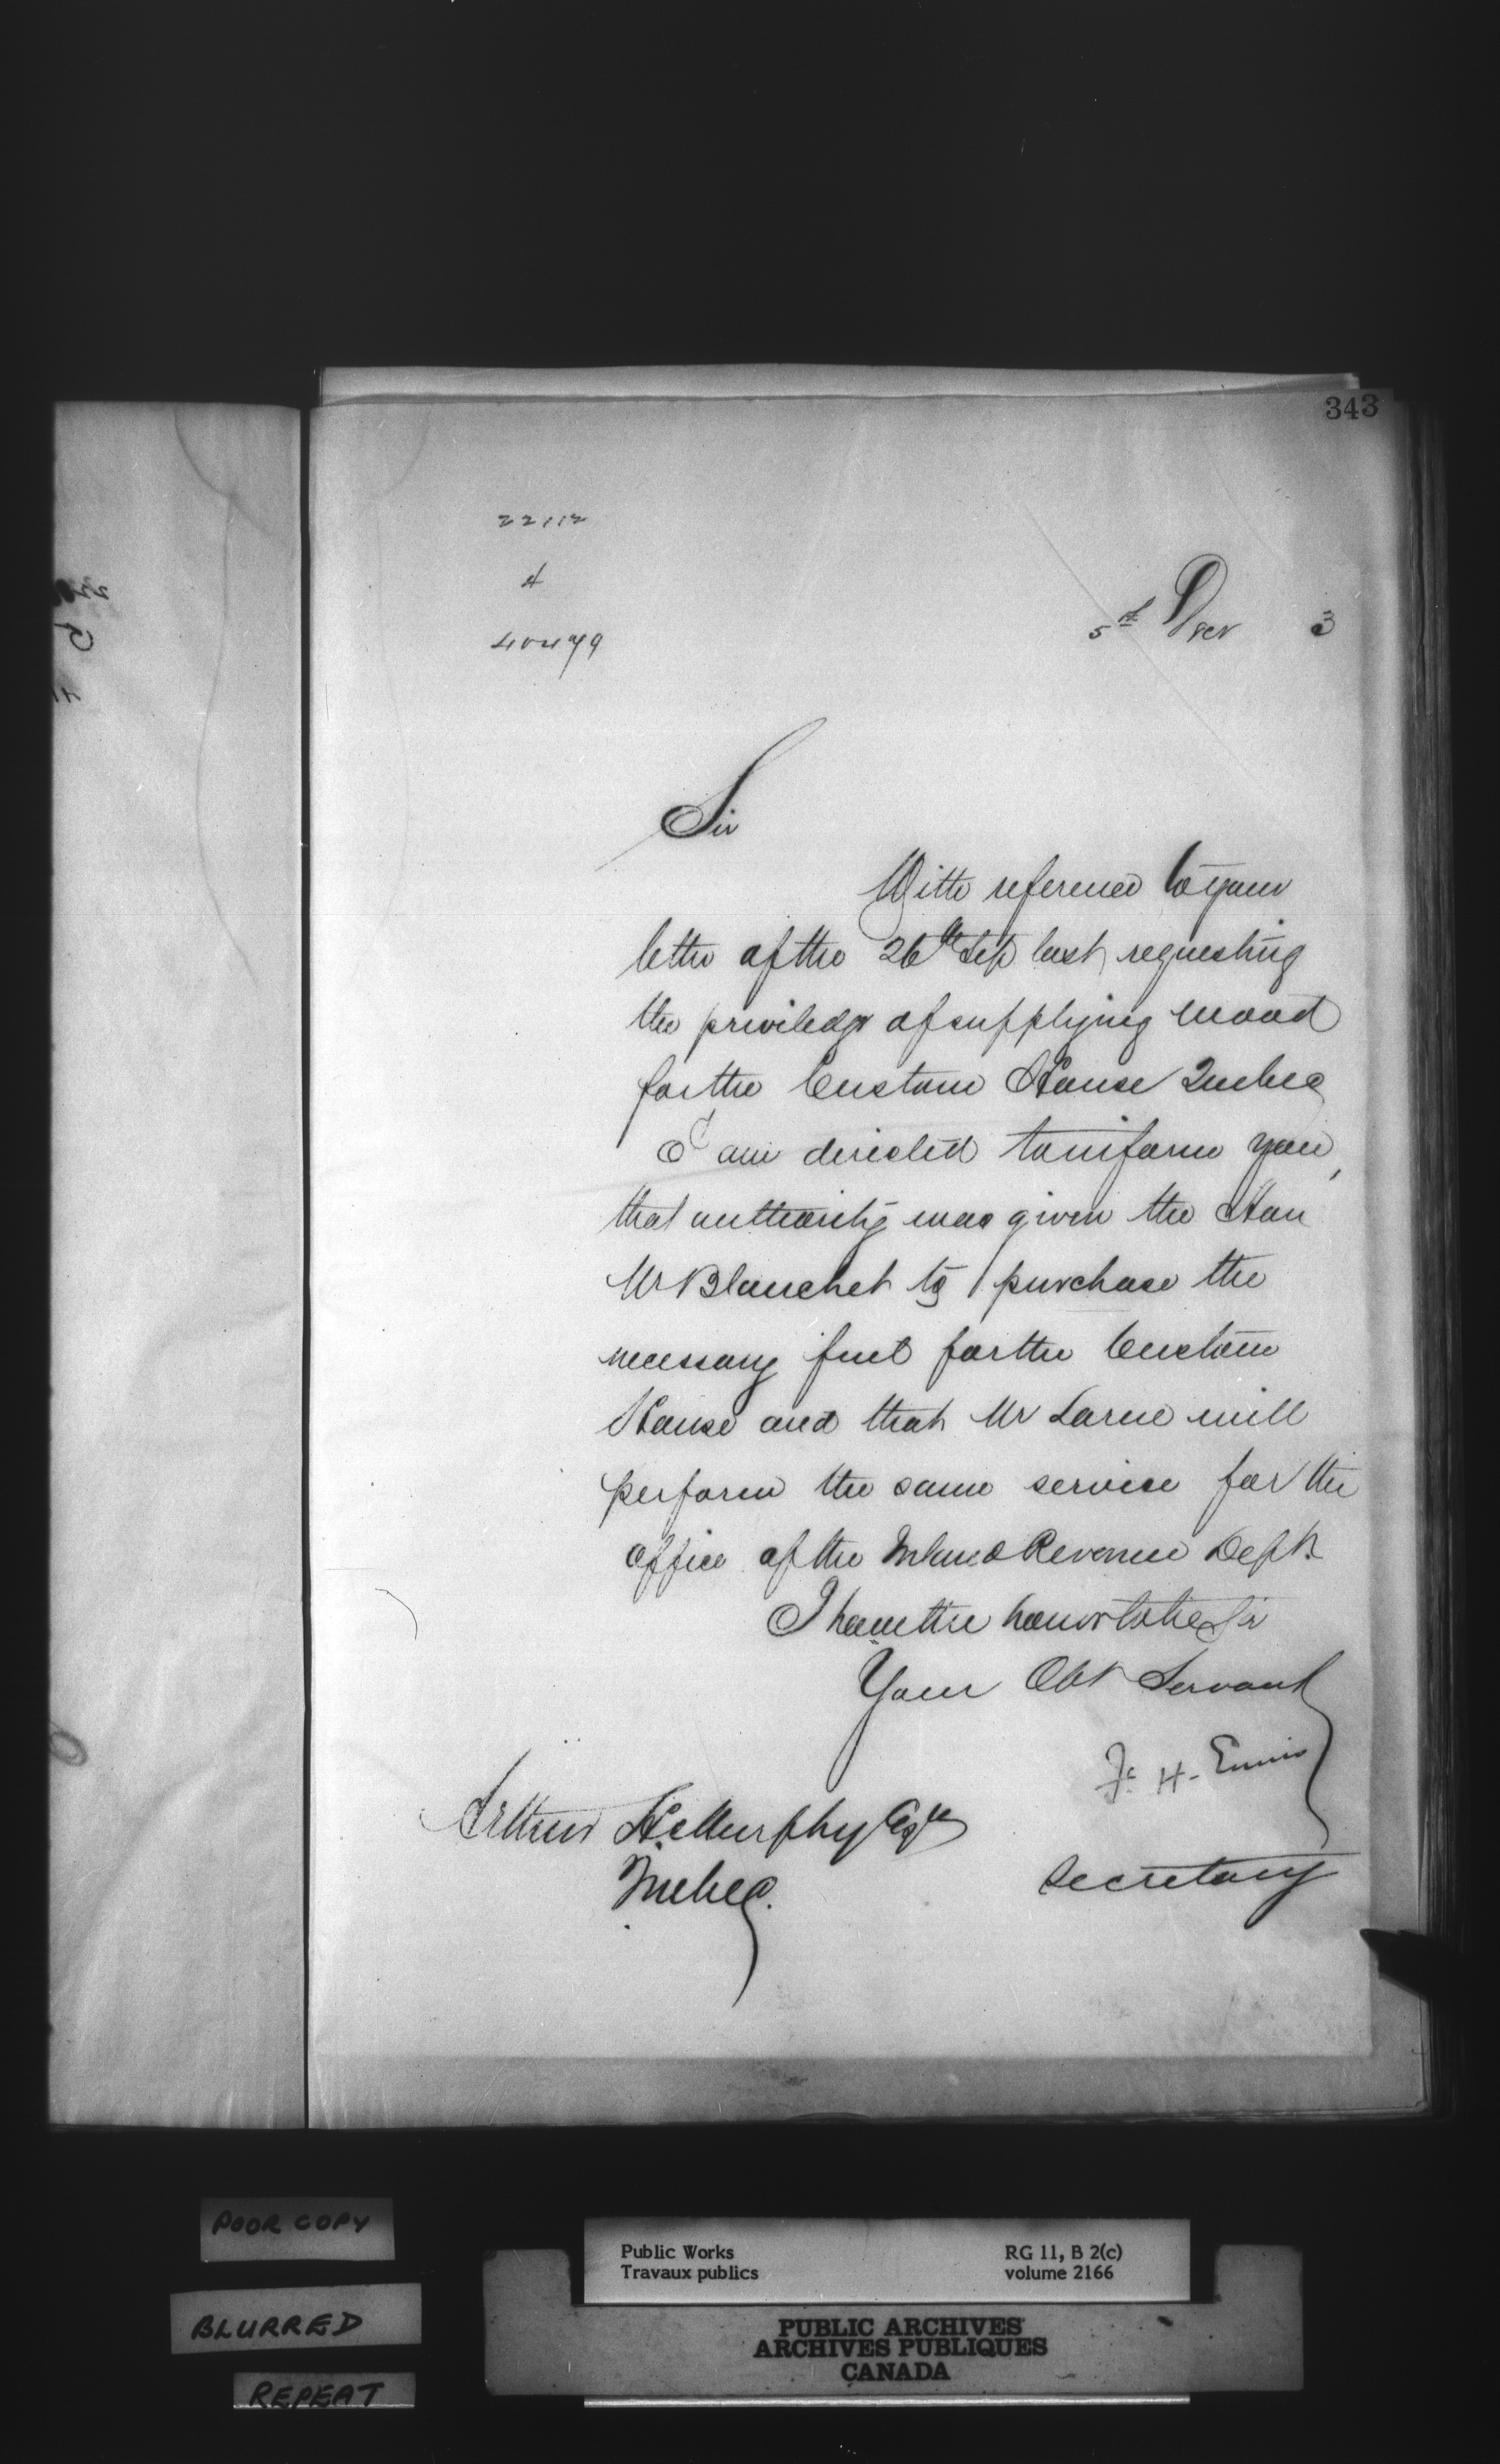 343
22112
A
40479
5th Dec 3
Sir
With reference to your
letter of the 26th Sep last requesting
the priviledge of supplying wood
for the Custom House Quebec
I am directed to inform you,
that authority was given the Hon
Mr Blanchet to purchase the
necessary fuel for the Custom
House and that Mr Larue will
perform the same service for the
Office of the Inland Revenue Dept.
I have the honor to be Sir
Your Obt Servant
F. H. Ennis
Arthur H. Murphy Esqre
Secretary
Quebec.
POOR COPY
BLURRED
REPEAT
Public Works
Travaux publics
RG 11, B 2(c)
volume 2166
PUBLIC ARCHIVES
ARCHIVES PUBLIQUES
CANADA